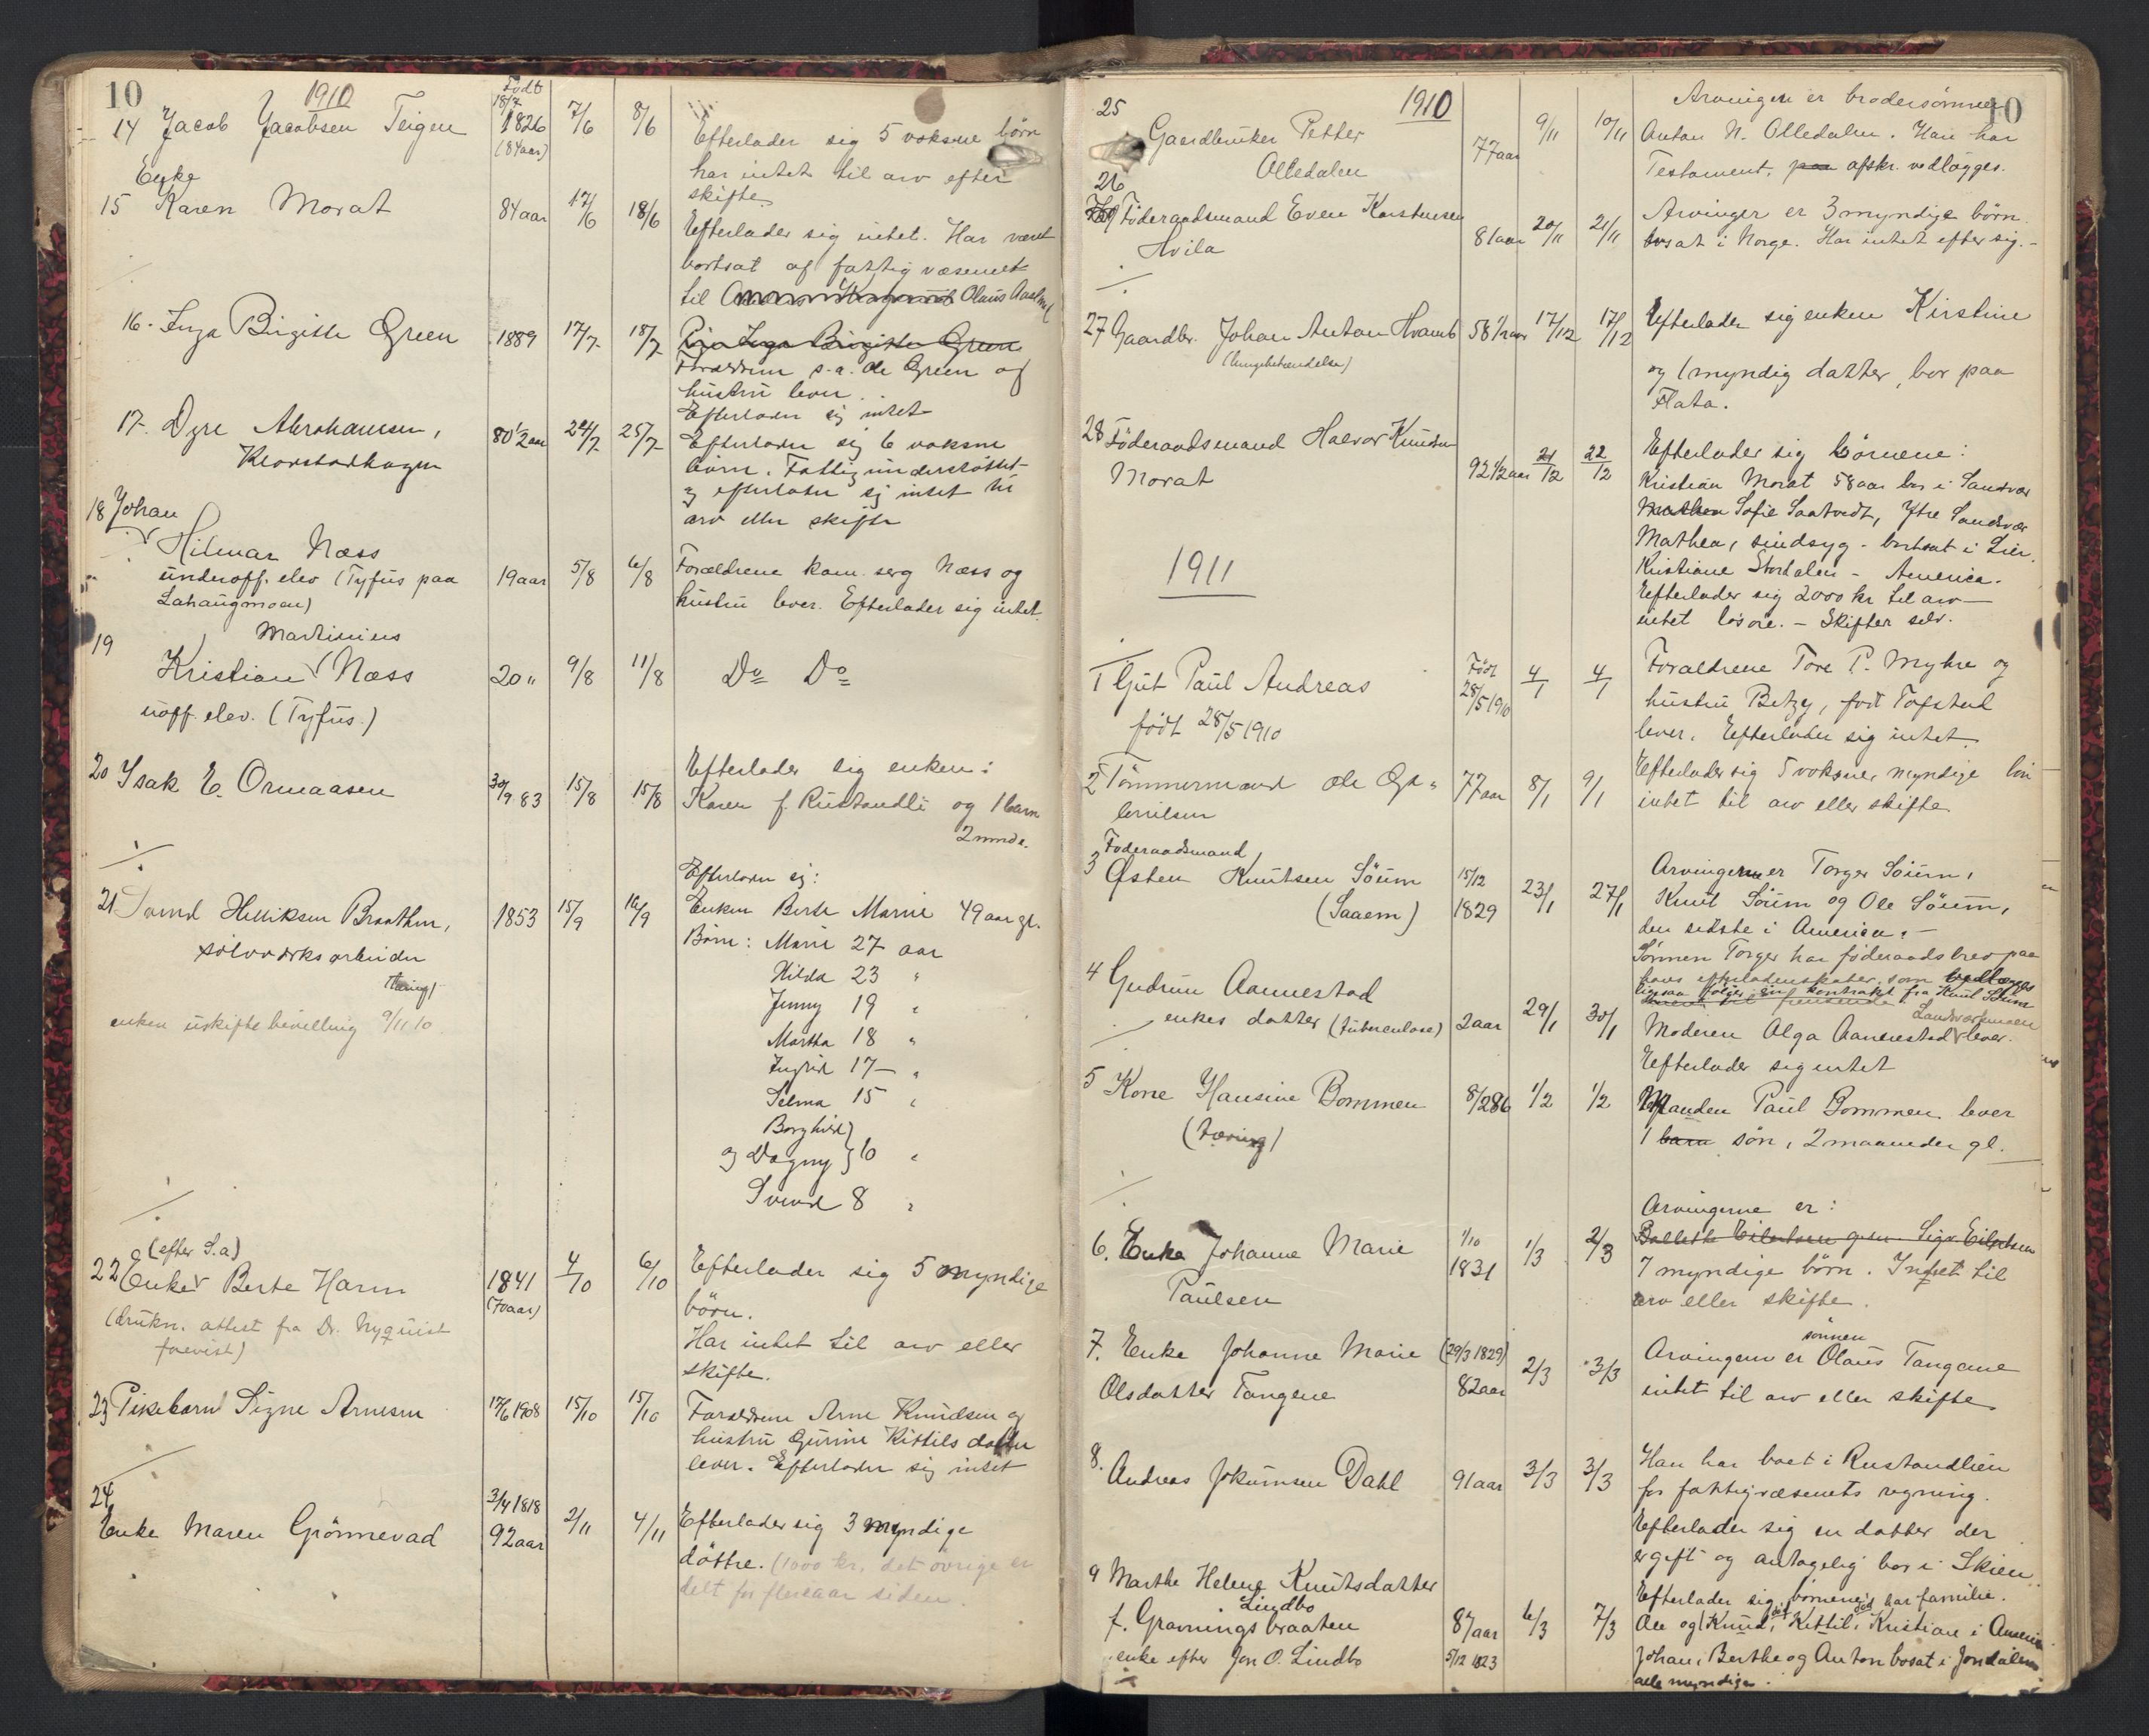 10
1910
Født
14 Jacob Jacobsen Teigen 18/7 1826 (84 aar) 7/6 8/6 Efterlader sig 5 voksne børn
har intet til arv efter
skifte.
Enke
15 Karen Morat 84 aar 17/6 18/6 Efterlader sig intet. Har været
bortsat af fattigvæsenet
til Olaus
16. Inga Birgitte Green 1889 17/7 18/7 Inga Birgitte Green
Forældrene s.a. Ole Green og
hustru lever.
Efterlader sig intet
17. Dyre Abrahamsen, 80 1/2 aar 24/7 25/7 Efterlader sig 6 voksne
Klovstadhagen
børn. Fattigunderstøttet
og efterlader sig intet til
arv eller skifte
18 Johan
Hilmar Næss
underoff. elev (Tyfus paa 19 aar 5/8 6/8 Forældrene kom. serg Næss og
Lahaugmoen)
hustru lever. Efterlader sig intet.
19 Martinius
Kristian Næss 20 " 9/8 11/8 Do Do
uoff. elev. (Tyfus.)
20 Isak E. Ormaasen 30/9 83 15/8 15/8 Efterlader sig enken:
Karen f. Rustandli og 1 barn
2 mndr.
21 Svend Helliksen Braathen, 1853 15/9 16/9 Efterlader sig:
Enken Berte Marie 49 aar gl.
sølvværksarbeider
(tæring)
enken uskiftebevilling 9/11 10.
Børn: Marie 27 aar
Hilda 23 "
Jenny 19 "
Martha 18 "
Ingrid 17 "
Selma 15 "
Borghild
og Dagny } 10 "
Svend 8 "
(efter S.a)
22 Enke Berte Harm 1841 (70 aar) 4/10 6/10 Efterlader sig 5 myndige
børn.
(drukn. attest fra Dr. Nyquist
forevist)
Har intet til arv eller
skifte.
23 Pikebarn Signe Arnesen 17/6 1908 15/10 15/10 Forældrene Arne Knudsen og
hustru Gurine Kittilsdatter
lever. Efterlader sig intet
24
Enke Maren Grønnevad 3/4 1818 92 aar 2/11 4/11 Efterlader sig 3 myndige
døttre. (1000 kr, det øvrige er
delt for flere aar siden.
10
1910
25 Gaardbruker Petter 77 aar 9/11 10/11 Arvingen er brodersønnen
Olledalen
Anton N. Olledalen. Han har
Testament, paa afskr. vedlægges.
26
Føderaadsmand Even Karstensen 81 aar 20/11 21/11 Arvinger er 3 myndige børn
Hvila
bosat i Norge. Har intet efter sig. -
27 Gaardbr. Johan Anton Hvamb 58 1/2 aar 17/12 17/12 Efterlader sig enken Kirstine
(lungebetændelse)
og 1 myndig datter, bor paa
Flata.
28 Føderaadsmand Halvor Knudsen
Morat 92 1/2 aar 21/12 22/12 Efterlader sig børnene:
Kristian Morat 58 aar bor i Sandsvær
Mathea Sofie Saatvedt, Ytre Sandsvær
Mathea, sindsyg - bortsat i Lier.
Kristiane Stordalen - America.
Efterlader sig 2000 kr til arv -
intet løsøre. - Skifter selv.
1911
1 Gut Paul Andreas Født 28/5 1910 4/1 4/1 Forældrene Tore P. Myhre og
født 28/5 1910
hustru Betzy, født Tofstad
lever. Efterlader sig intet.
2 Tømmermand Ole 77 aar 8/1 9/1 Efterlader sig 5 voksne, myndige
intet til arv eller skifte
Føderaadsmand
3 Østen Knutsen Søum 15/12 1829 23/1 27/1 Arvingerne er Torger Søum,
(Saaem)
Knut Søum og Ole Søum,
den sidste i America. -
Sønnen Torger har føderaadsbrev paa
hans efterladenskaber, som vedlægges
ligesaa følger en kontrakt fra Knut Søum
4 Gudrun Aannestad
enkes datter (tuberculose) 2 aar 29/1 30/1 Landsværkmoen
Moderen Olga Aannestad lever.
Efterlader sig intet
5 Kone Hansine Bommen 8/2 86 1/2 1/2 Manden Paul Bommen lever
(tæring)
1 barn søn, 2 maaneder gl.
Arvingerne er:
6. Enke Johanne Marie 1/10 1831 1/3 2/3
Paulsen
7 myndige børn. Intet til
arv eller skifte.
7. Enke Johanne Marie (29/3 1829) 2/3 3/3 Arvingen er sønnen Olaus Tangene
Olsdatter Tangene 82 aar
intet til arv eller skifte
8. Andreas Jokumsen Dahl 91 aar 3/3 3/3 Han har boet i Rustandlien
for fattigvæsenets regning.
Efterlader sig en datter der
er gift og antagelig bor i Skien
9 Marthe Helene Knutsdatter
Lindbo
f. Gravningsbraaten 87 aar 6/3 7/3 Efterlader sig børnene, har familie.
enke efter Jon O. Lindbo 5/12 1823
Ole og Knud, Kittil, Kristian i America
Johan, Berthe og Anton bosat i Jondalen
alle myndige.